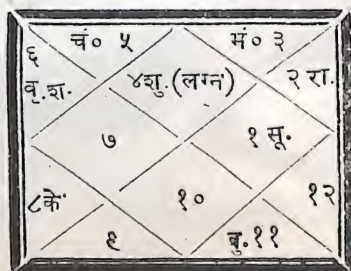 ६ चं० ५ मं० ३
वृ.श. ४शु.(लग्न) २ रा.
७ १ सू.
८के १० १२
९ बु.११